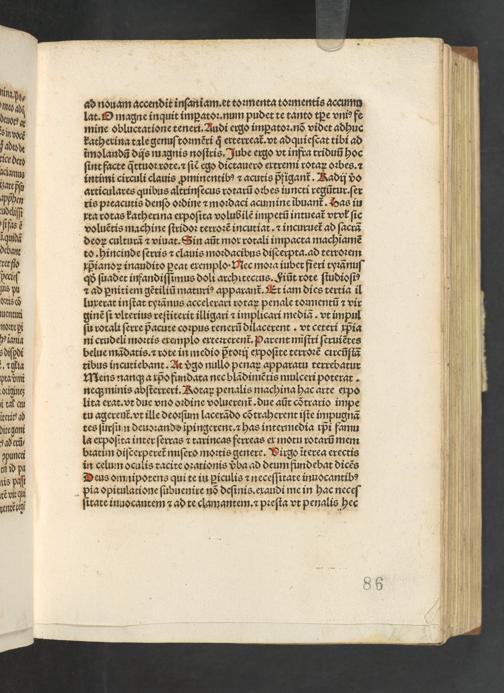 ad nouam accendit insaniam.et tormenta tormentis accumu
lat. O magne inquit imꝑator.num pudet te tanto tꝑe vniꝰ fe
mine obluctatione teneri. Audi ergo imꝑator.nō videt adhuc
katherina tale genus tormēti q̄ exterreat᷑.vt adquiescat tibi ad
īmolandū dijs magnis nostris. Jube ergo vt infra triduū hoc
sint facte q̄tuor rote.⁊ sic̄ ego dictauero extremi rotaꝝ orbes.⁊
intimi circuli clauis ꝓminentibꝰ ⁊ acutis p̄figant᷑. Radij v̄o
articulares quibus altrinsecus rotarū orbes iuncti regūtur.ser
ris preacutis denso ordine ⁊ mordaci acumine ibuant᷑. Has iu
xta rotas katherina exposita volubilē impetū intueat᷑ vt vl̓ sic
voluētis machine stridor terrorē incutiat.⁊ incuruet᷑ ad sacrā
deoꝝ culturā ⁊ viuat. Sin aūt mox rotali impacta machiamē
to.hincinde serris ⁊ clauis mordacibus discerpta.ad terrorem
xp̄ianoꝝ inaudito ꝑeat exemplo. Nec mora iubet fieri tyrānus
qd̄ suadet insandissimus doli architectus. Fiūt rote studiosiꝰ
⁊ ad ꝑnitiem gētiliū maturiꝰ apparant᷑. Et iam dies tertia il
luxerat instat tyrānus accelerari rotaꝝ penale tormentū ⁊ vir
ginē si vlterius restiterit illigari ⁊ implicari mediā. vt impul
su rotali serre p̄acute corpus tenerū dilacerent. vt ceteri xp̄ia
ni crudeli mortis exemplo exterrerent᷑. Parent mīstri seruiētes
belue mādatis.⁊ rote in medio p̄torij exposite terrorē circūsta
tibus incutiebant. At v̄go nullo penaꝝ apparatu terrebatur
Mens nanq̄ a xp̄o fundata nec blādimētis mulceri poterat.
neqꝫ minis absterreri. Rotaꝝ penalis machina hac arte expo
lita erat.vt due vno ordine voluerent᷑.due aūt cōtrario impe
tu agerent᷑.vt ille deorsum lacerādo cōtraherent iste impugnā
tes sursum deuorādo īpingerent.⁊ has intermedia xp̄i famu
la exposita inter serras ⁊ tarincas ferreas ex motu rotarū mem
bratim discerperet᷑ misero mortis genere. Virgo īterea erectis
in celum oculis tacite orationis v̄ba ad deum fundebat dicēs
Deus omnipotens qui te iu ꝑiculis ⁊ necessitate inuocantibꝰ
pia opitulatione subuenire nō desinis.exaudi me in hac neces
sitate inuocantem ⁊ ad te clamantem.⁊ presta vt penalis hec
86